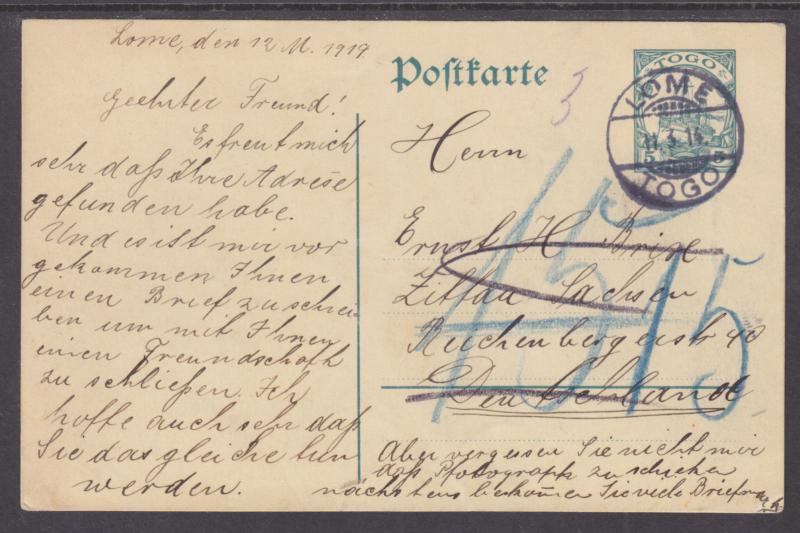 Lome, den 12 M. 1919
Geehrter Freund!
Es freut mich
sehr daß Ihre Adrese
gefunden habe.
Und es ist mir vor
gekommen Ihnen
einen Brief zu schrei
ben um mit Ihnen
einen Freundschaft
zu schließen. Ich
hoffe auch sehr daß
Sie das gleiche tun
werden.
Postkarte
TOGO
5
LOME
TOGO
3
Herrn
Ernst H Brixe
Zittau Sachsen
Reichenbergerstr 40
Deutschland
15
15
Aber vergessen Sie nicht mir
daß Photograph zu schicken
nächstens bekommen Sie viele Briefmark